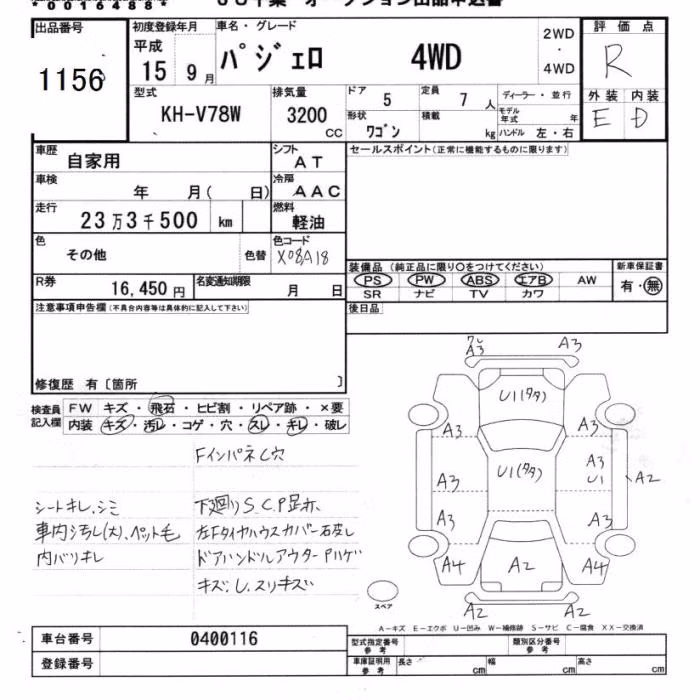 *00164884*
出品番号
1156
初度登録年月
平成
15 9月
車名・グレード
パジェロ 4WD
2WD
・
4WD
評価点
R
外装 内装
E D
型式
KH-V78W
排気量
3200
cc
ドア
5
定員
7 人
ディーラー・並行
形状
ワゴン
積載
kg
モデル年式 年
ハンドル 左・右
車歴
自家用
シフト
AT
車検
年 月( 日)
冷房
AAC
走行
23万3千500 km
燃料
軽油
色
その他
色替
色コード
X08A18
R券
16,450円
名変通知期限
月 日
セールスポイント(正常に機能するものに限ります)
装備品 (純正品に限り○をつけてください)
PS PW ABS エアB AW
SR ナビ TV カワ
新車保証書
有・無
後日品
注意事項申告欄(不具合内容等は具体的に記入して下さい)
修復歴 有〔箇所 〕
検査員記入欄
FW キズ・飛石・ヒビ割・リペア跡・×要
内装 キズ・汚レ・コゲ・穴・スレ・キレ・破レ
Fインパネ㇄穴
シートキレ、シミ
下廻りS.C.P
車内汚レ(大)、ペット毛
左Fタイヤハウスカバー
内バリキレ
ドアハンドルアウターPハゲ
キズ
A3
A3
U1(タタ)
A3
A3
U1
A3
U1(タタ)
A2
A3
A3
A4
A2
A4
A2
A2
スペア
A-キズ E-エクボ U-凹み W-補修跡 S-サビ C-腐食 XX-交換済
車台番号
0400116
登録番号
型式指定番号
参考
類別区分番号
参考
車庫証明用
参考
長さ cm
幅 cm
高さ cm